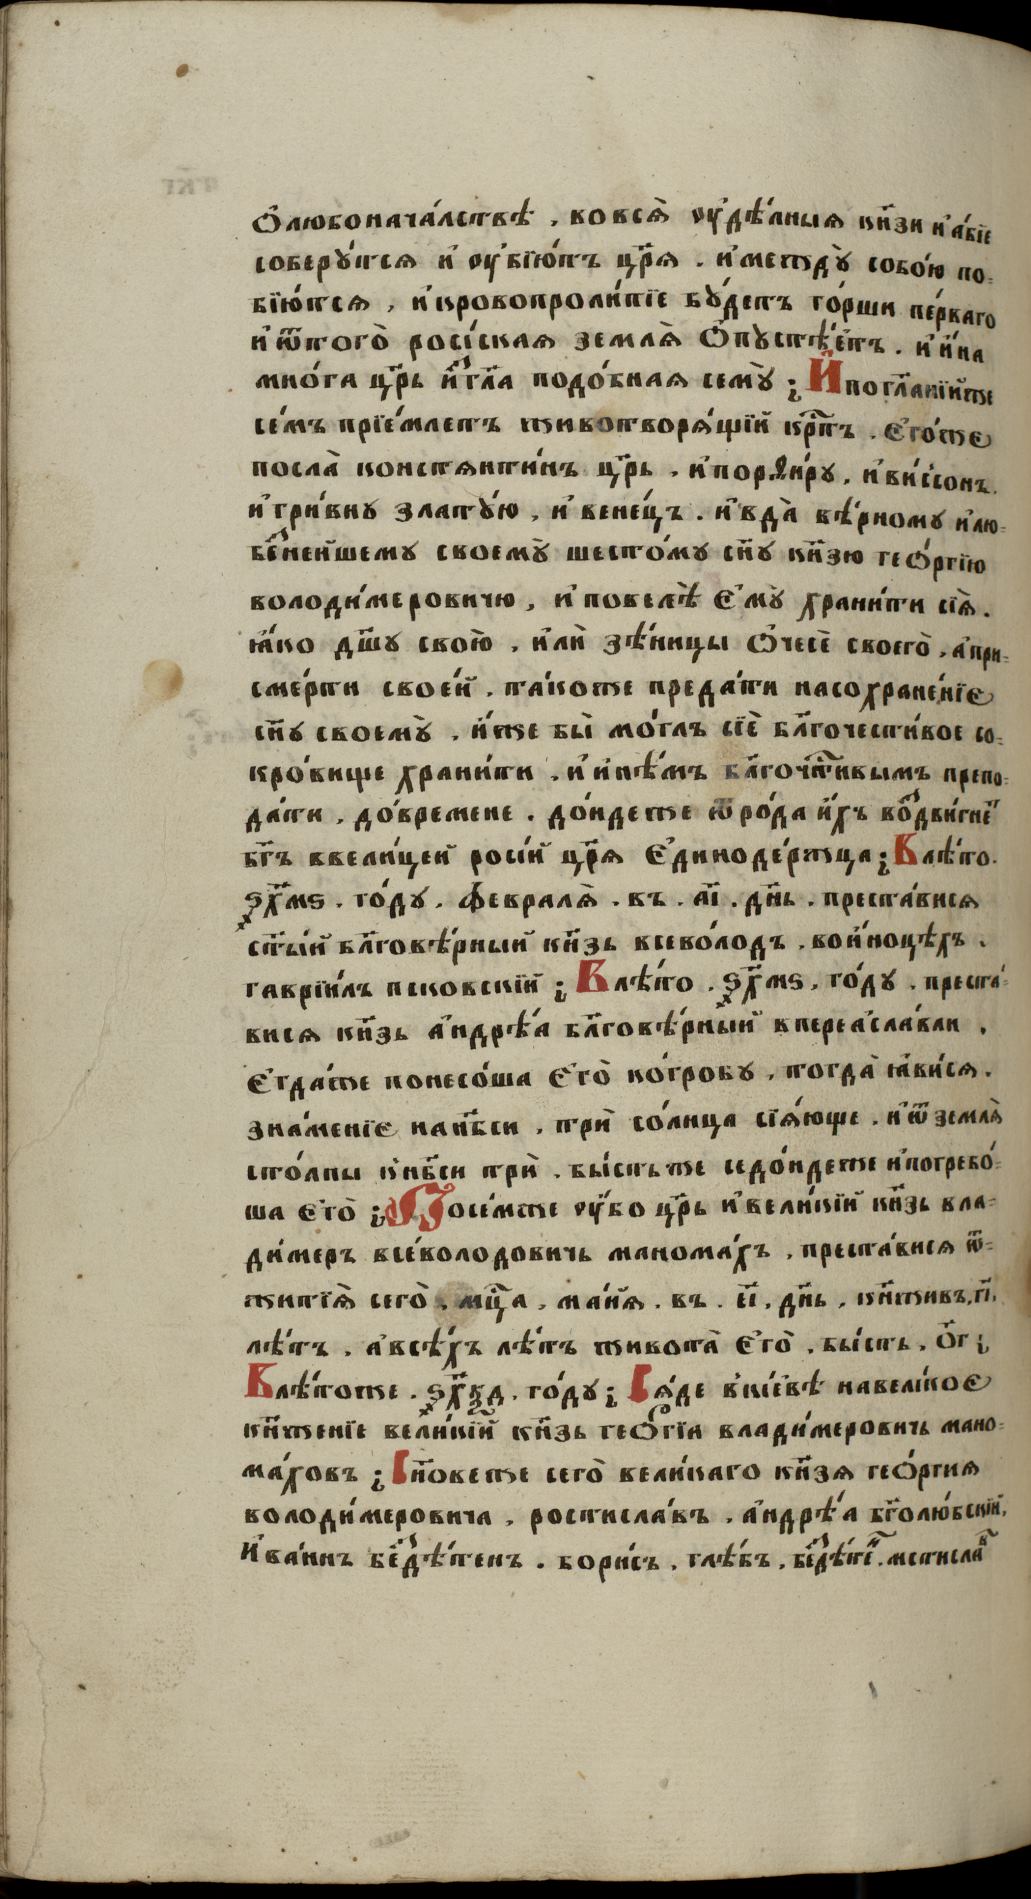 Ѻлюбоначáлствѣ , ко всѧ̀ ᲂу҆дѣ́лныѧ кн҃зи и҆ а́бїе
соберꙋ́тсѧ и҆ ᲂу҆бїю́тъ цр҃ѧ . и҆ междꙋ̀ собо́ю по=
бїю́тсѧ , и҆ кровопроли́тїе бꙋ́детъ го́рши пе́рваго
и҆ ѿтого̀ росі́скаѧ землѧ̀ ѻ҆пꙋстѣ́етъ . и҆ и҆́на
мно́га цр҃ь и҆згл҃а подо́бнаѧ семꙋ̀ ; И҆ по гл҃анїи҆ же
се́мъ прїе́млетъ животворѧ́щїй кр҃тъ . є҆го́же
посла̀ констѧнти́нъ цр҃ь . и҆ порѳи́рꙋ , и҆ ви́ссонъ .
и҆ гри́внꙋ златꙋ́ю , и҆ вене́цъ . и҆ вда̀ вѣ́рномꙋ и҆ лю=
бе́знейшемꙋ своемꙋ̀ шесто́мꙋ сн҃ꙋ кн҃зю геѻ́ргїю
володи́меровичю , и҆ повелѣ̀ є҆мꙋ̀ храни́ти сїѧ̀ .
ꙗ҆́ко дш҃ꙋ свою̀ , и҆лѝ зѣ́ницы ѻ҆чесѐ своего̀ , а҆ при=
сме́рти свое́й , та́коже преда́ти на сохране́нїє
сн҃ꙋ своемꙋ̀ , и҆́же бы̀ мо́глъ сїѐ бл҃гочести́вое со=
кро́вище храни́ти . и҆ и҆нѣ́мъ бл҃гочⷭ҇тивымъ препо=
да́ти , до́времене . до́ндеже ѿ ро́да и҆́хъ воздви́гнеⷮ
бг҃ъ ввели́цей росі́й цр҃ѧ є҆диноде́ржца ; В лѣ́то .
ѕ҂х҃мѕ . го́дꙋ . февралѧ̀ . въ . а҃і . дн҃ь . преста́висѧ
ст҃ы́й бл҃говѣ́рный кн҃зь всево́лодъ , вои́ноцѣхъ .
гаврїи́лъ псковскі́й ; В лѣ́то . ѕ҂х҃мѕ , го́дꙋ . преста́=
висѧ кн҃зь а҆ндрѣ́а бл҃говѣ́рный в переа҆сла́вли .
Є҆гда́же понесо́ша є҆го̀ ко́гробꙋ , тогда̀ ꙗ҆ви́сѧ .
зна́менїє на нб҃си . трѝ со́лнца сїѧ́юще . и҆ ѿ землѧ̀
сто́лпы к нб҃си трѝ . бы́сть же се до́ндеже и҆ погребо́=
ша є҆го̀ ; По се́мже ᲂу҆́бо цр҃ь и҆ вели́кїй кн҃зь вла=
ди́меръ все́володовичь манома́хъ , преста́висѧ ѿ=
житїѧ̀ сего̀ . мцⷭ҇а , ма́иѧ . въ . н҃і . дн҃ь . кн҃живъ , г҃і .
лѣ́тъ . а҆ всѣ́хъ лѣ́тъ живота̀ є҆го̀ , бы́сть , о҃г ;
В лѣ́тоже . ѕ҂х҃кд . го́дꙋ ; Сѧ́де в кі́евѣ на вели́коє
кн҃женїе вели́кїй кн҃зь геѻргїи влади́меровичь мано=
ма́ховъ ; Сн҃овеже сего̀ вели́каго кн҃зѧ геѻ́ргиѧ
володи́меровича , ростисла́въ . а҆ндрѣ́а бг҃олю́бскїй ,
И҆ва́ннъ безⷣѣ́тенъ . бори́съ , глѣ́бъ , безⷣѣ́теⷩ . мстислаⷡ